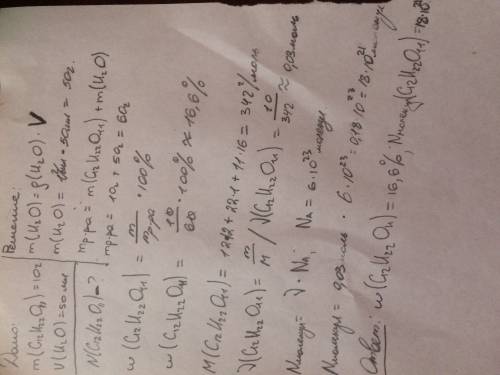 Дано:
m(C12H22O11) = 10г
V(H2O) = 50 мл
N(C12H22O11) - ?
Решение:
m(H2O) = ρ(H2O) · V
m(H2O) = · 50мл = 50г.
mр-ра = m(C12H22O11) + m(H2O)
mр-ра = 10г + 50г = 60г
w(C12H22O11) = m/mр-ра · 100%
w(C12H22O11) = 10/60 · 100% ≈ 16,6%
M(C12H22O11) = 12·12 + 22·1 + 11·16 = 342 г/моль
ν(C12H22O11) = m/M / ν(C12H22O11) = 10/342 ≈ 0,03 моль
Nмолекул = ν · NA; NA = 6·10²³ молекул.
Nмолекул = 0,03 моль · 6·10²³ = 0,18·10²³ = 18·10²¹ молекул
Ответ: w(C12H22O11) = 16,6%; Nмолекул(C12H22O11) = 18·10²¹